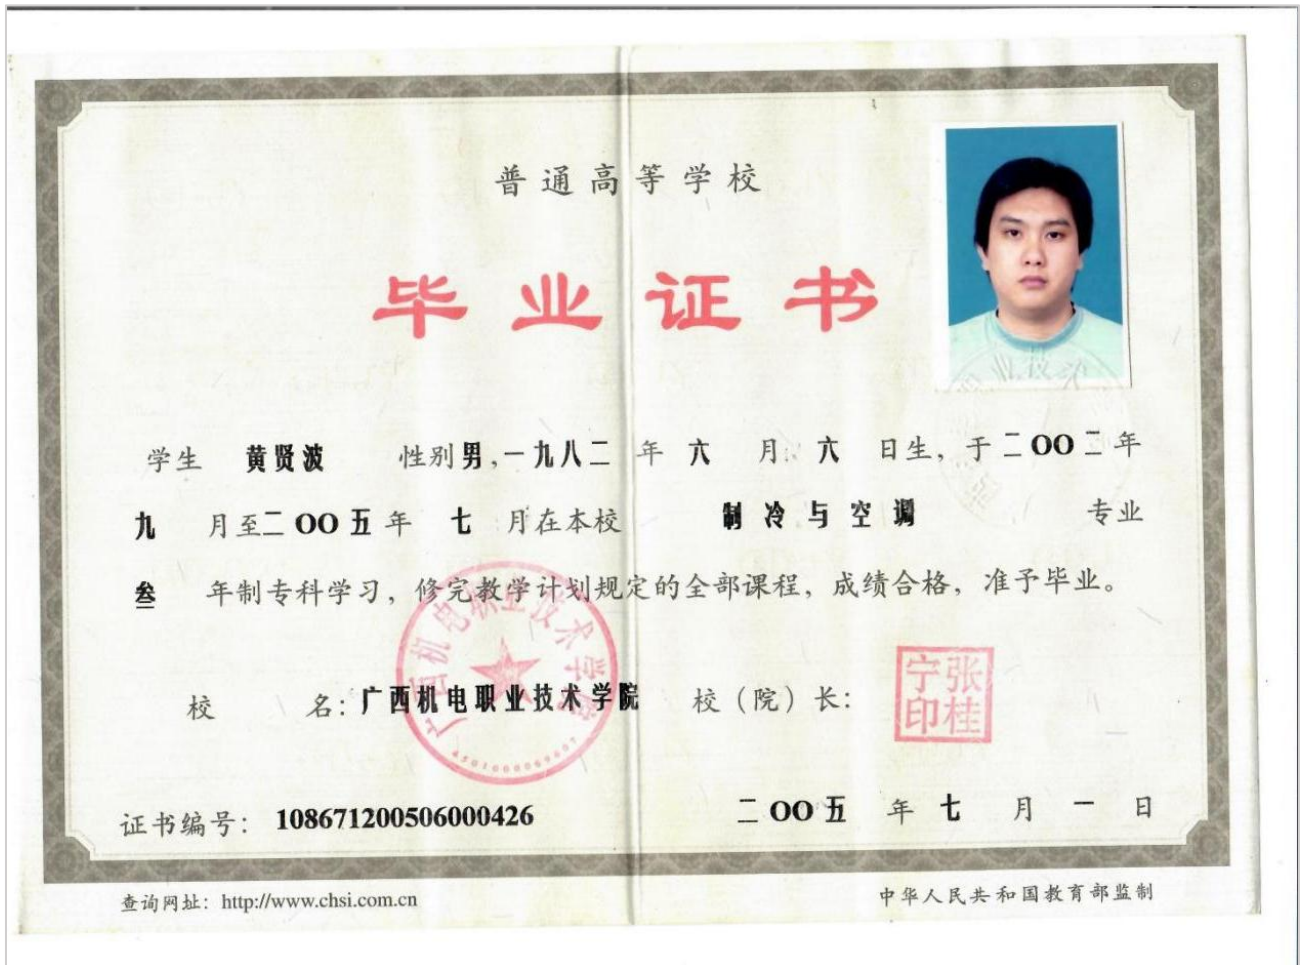 普通高等学校
毕业证书
学生 黄贤波 性别男,一九八二 年 六 月 六 日生,于二OO二年
九 月至二OO五年 七 月在本校 制冷与空调 专业
叁 年制专科学习,修完教学计划规定的全部课程,成绩合格,准予毕业。
广西机电职业技术学院
校 名:广西机电职业技术学院 校(院)长:
张桂宁印
证书编号: 108671200506000426 二OO五 年 七 月 一 日
查询网址:http://www.chsi.com.cn 中华人民共和国教育部监制